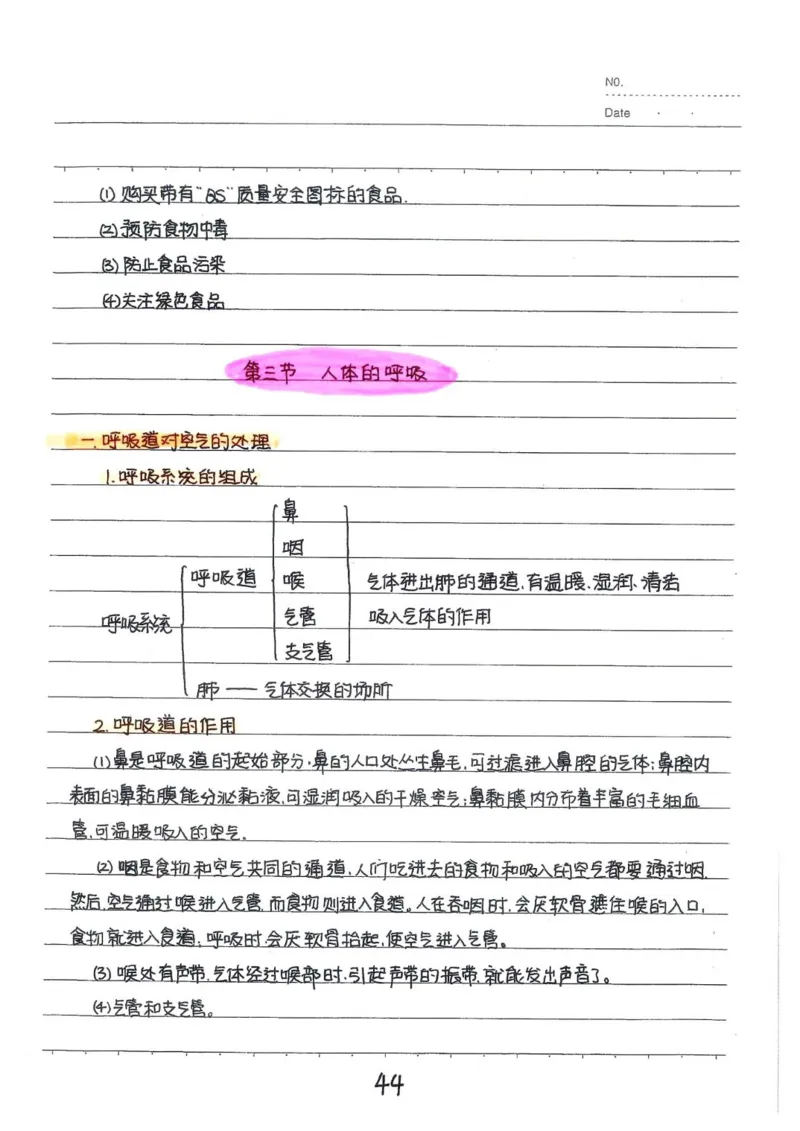 NO.
Date
(1) 购买带有"QS"质量安全图标的食品.
(2) 预防食物中毒
(3) 防止食品污染
(4) 关注绿色食品
第三节 人体的呼吸
一.呼吸道对空气的处理
1.呼吸系统的组成
鼻
咽
呼吸道 喉 气体进出肺的通道,有温暖、湿润、清洁
呼吸系统 气管 吸入气体的作用
支气管
肺 —— 气体交换的场所
2.呼吸道的作用
(1) 鼻是呼吸道的起始部分,鼻的入口处丛生鼻毛,可过滤进入鼻腔的气体;鼻腔内
表面的鼻黏膜能分泌黏液,可湿润吸入的干燥空气;鼻黏膜内分布着丰富的毛细血
管,可温暖吸入的空气.
(2) 咽是食物和空气共同的通道,人们吃进去的食物和吸入的空气都要通过咽.
然后,空气通过喉进入气管,而食物则进入食道。人在吞咽时,会厌软骨遮住喉的入口,
食物就进入食道;呼吸时,会厌软骨抬起,使空气进入气管。
(3) 喉处有声带,气体经过喉部时,引起声带的振带,就能发出声音了。
(4) 气管和支气管。
44